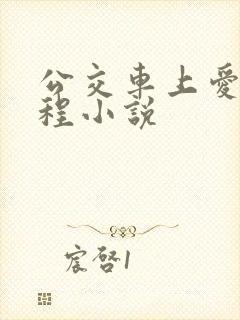 公交車上愛
程小說
宸啓1